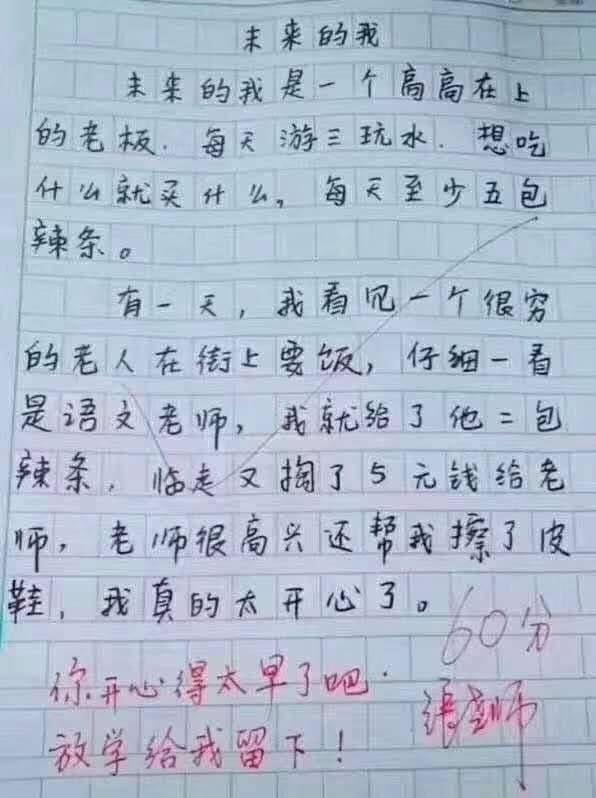 未来的我
未来的我是一个高高在上
的老板.每天游三玩水.想吃
什么就买什么,每天至少五包
辣条。
有一天,我看见一个很穷
的老人在街上要饭,仔细一看
是语文老师,我就给了他二包
辣条,临走又掏了5元钱给老
师,老师很高兴还帮我擦了皮
鞋,我真的太开心了。
60分
你开心得太早了吧.
放学给我留下!